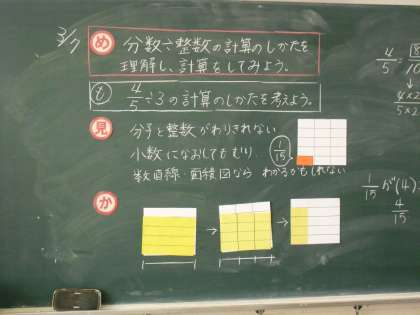 3/7
め 分数÷整数の計算のしかたを
理解し、計算をしてみよう。
も 4/5÷3の計算のしかたを考えよう。
見 分子と整数がわりきれない
小数になおしてもむり… 1/15
数直線・面積図なら わかるかもしれない
か
→ →
4/5 = 8
↓
4×2
5×2
1/15 が(4)
4/15